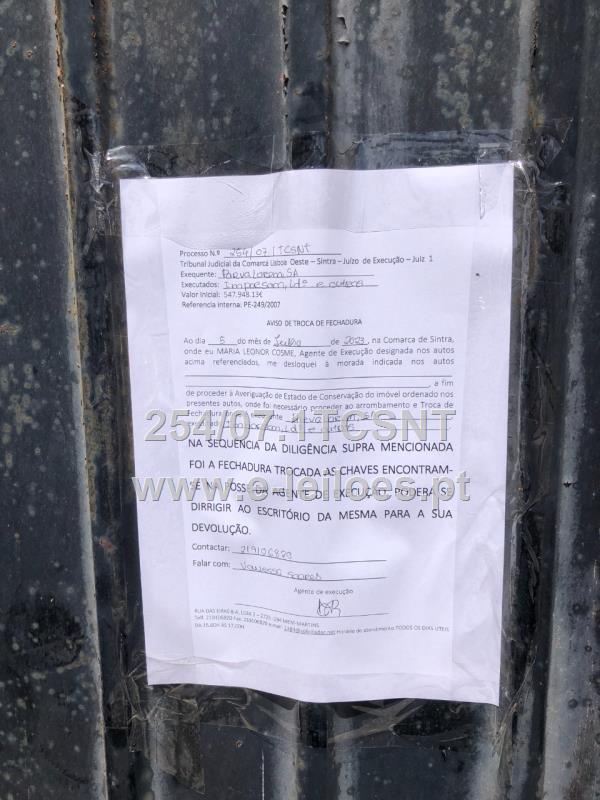 Processo N.º 254/07.1TCSNT
Tribunal Judicial da Comarca Lisboa Oeste – Sintra – Juízo de Execução – Juiz 1
Exequente: Parvalorem, SA
Executados: Impresom, Ldª e outros
Valor Inicial: 547.948.13€
Referencia interna: PE-249/2007
AVISO DE TROCA DE FECHADURA
Ao dia 5 do mês de Julho de 2023, na Comarca de Sintra,
onde eu MARIA LEONOR COSME, Agente de Execução designada nos autos
acima referenciados, me desloquei à morada indicada nos autos
, a fim
de proceder à Averiguação de Estado de Conservação do imóvel ordenado nos
presentes autos, onde foi necessário proceder ao arrombamento e Troca de
Fechadura
254/07.1TCSNT
NA SEQUENCIA DA DILIGÊNCIA SUPRA MENCIONADA
FOI A FECHADURA TROCADA AS CHAVES ENCONTRAM-
SE NA POSSE DA AGENTE DE EXECUÇÃO, PODERÁ SE
www.e-leiloes.pt
DIRRIGIR AO ESCRITÓRIO DA MESMA PARA A SUA
DEVOLUÇÃO.
Contactar: 219106820
Falar com: Vanessa Soares
Agente de execução
RUA DAS EIRAS 8-A, LOJA 2 – 2725-294 MEM-MARTINS
Horário de atendimento TODOS OS DIAS UTEIS
DA 15.00H ÀS 17.00H